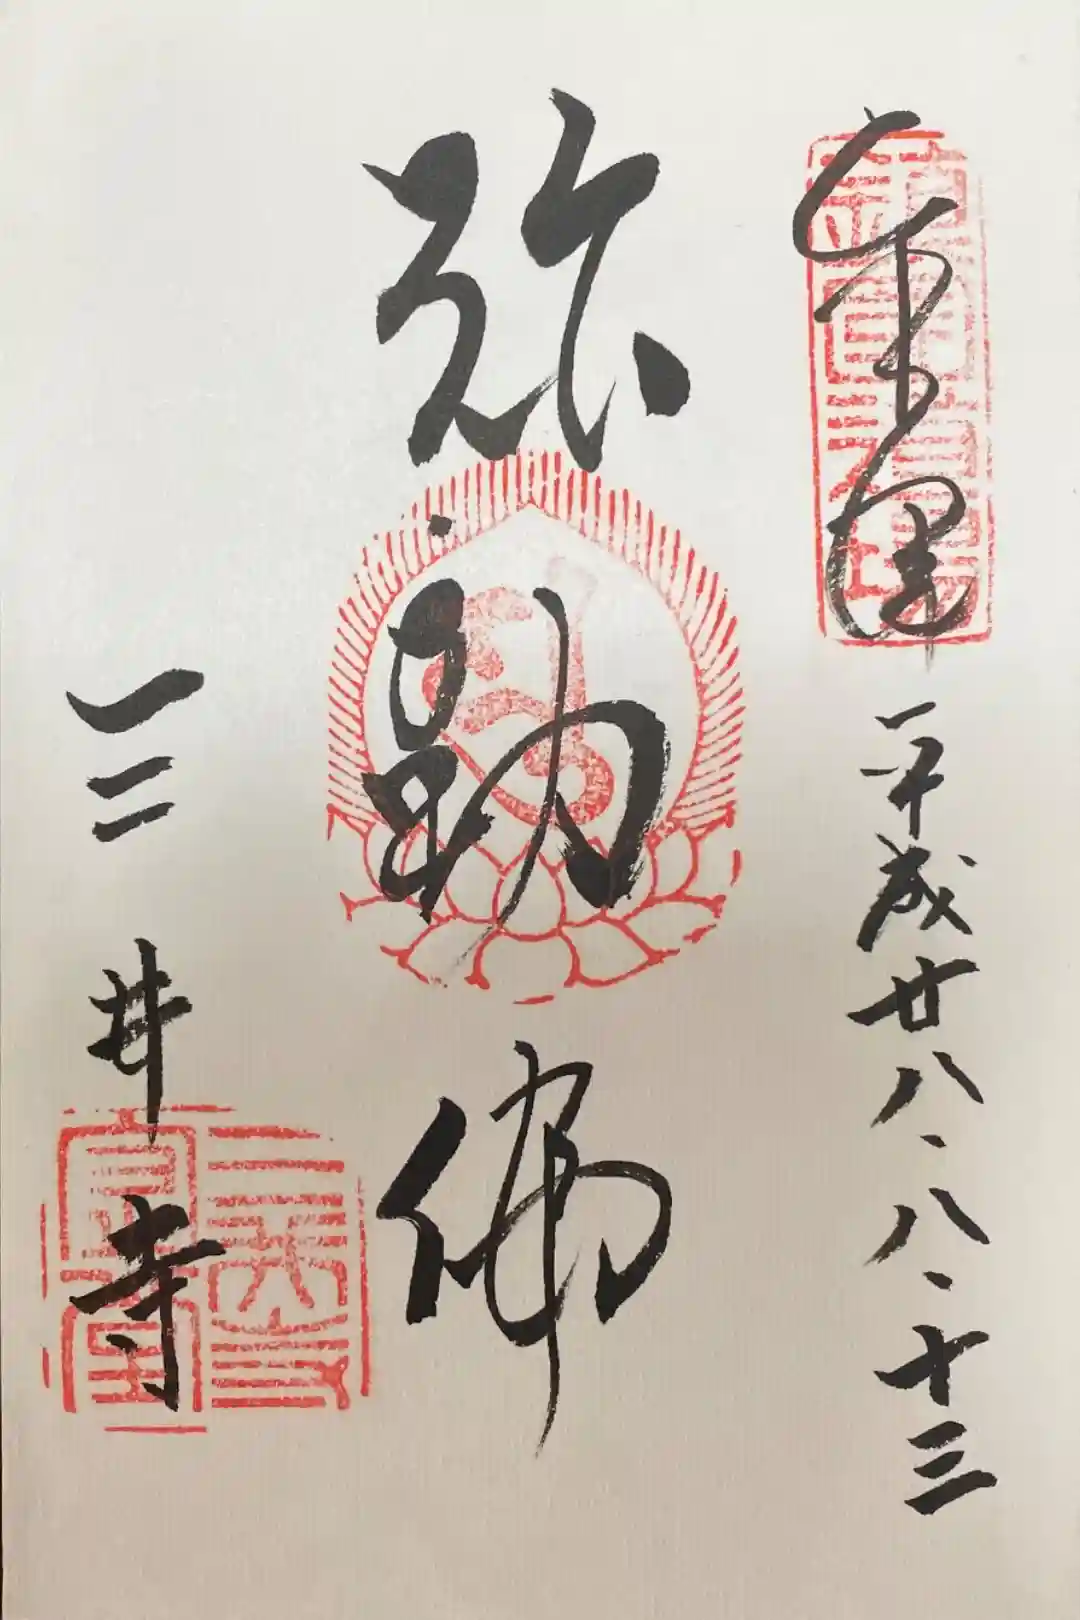 奉拝
平成廿八、八、十三
弥勒佛
三井寺